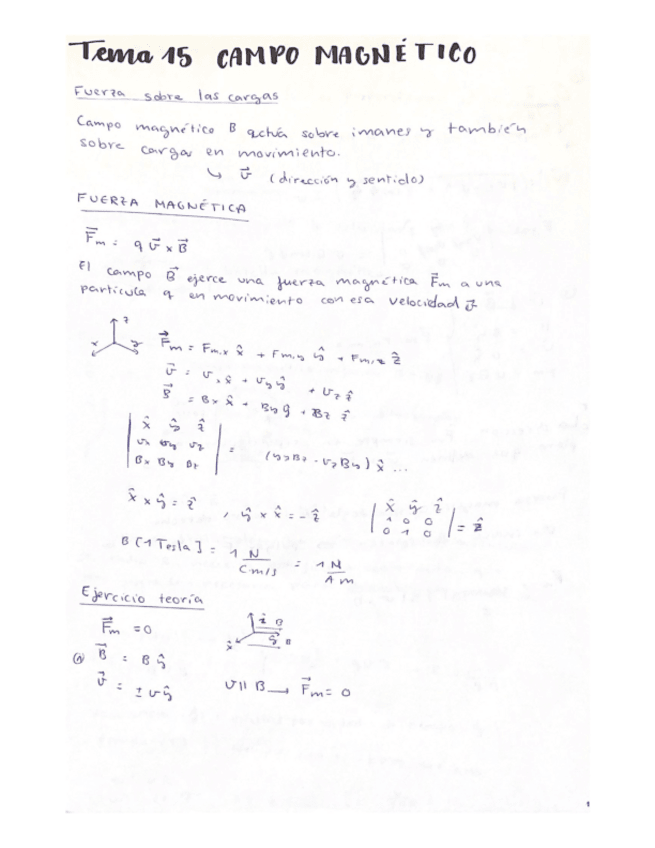 Tema 15 CAMPO MAGNÉTICO
Fuerza sobre las cargas
Campo magnético B actúa sobre imanes y también
sobre cargas en movimiento.
↳ v⃗ (dirección y sentido)
FUERZA MAGNÉTICA
F⃗m = q v⃗ x B⃗
El campo B⃗ ejerce una fuerza magnética F⃗m a una
partícula q en movimiento con esa velocidad v⃗
z
x y
F⃗m = Fm,x x̂ + Fm,y ŷ + Fm,z ẑ
v⃗ = vx x̂ + vy ŷ + vz ẑ
B⃗ = Bx x̂ + By ŷ + Bz ẑ
| x̂ ŷ ẑ |
| vx vy vz | = (vyBz - vzBy) x̂ ...
| Bx By Bz |
x̂ x ŷ = ẑ , ŷ x x̂ = -ẑ
| x̂ ŷ ẑ |
| 1 0 0 | = ẑ
| 0 1 0 |
B [1 Tesla] = 1 N / C m/s = 1 N / A m
Ejercicio teoría
F⃗m = 0
ẑ B
x̂ ŷ B
B⃗ = B ŷ
v⃗ = ± v ŷ v || B → F⃗m = 0
1